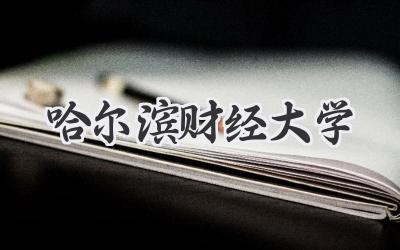 哈尔滨财经大学